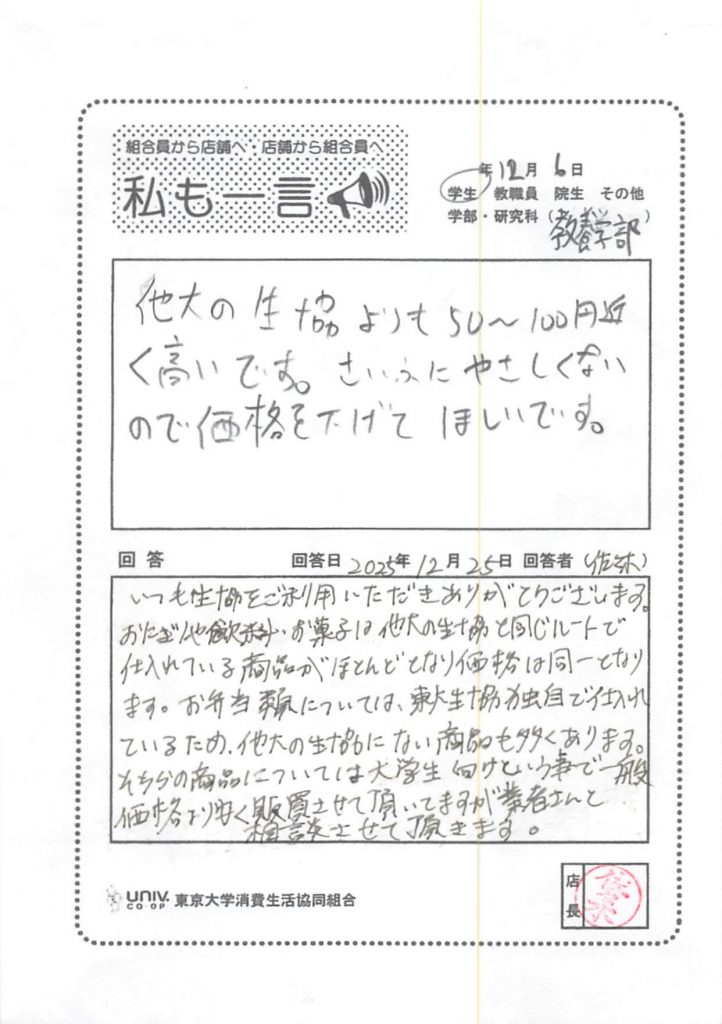 組合員から店舗へ・店舗から組合員へ
私も一言
年12月6日
学生 教職員 院生 その他
学部・研究科（教養学部）
他大の生協よりも50〜100円近
く高いです。さいふにやさしくない
ので価格を下げてほしいです。
回答 回答日 2025年12月25日 回答者（佐木）
いつも生協をご利用いただきありがとうございます。
おにぎりや飲料・お菓子は他大の生協と同じルートで
仕入れている商品がほとんどとなり価格は同一となり
ます。お弁当類については、東大生協独自で仕入れ
ているため、他大の生協にない商品も多くあります。
そちらの商品については大学生向けという事で一般
価格より安く販買させて頂いてますが業者さんと
相談させて頂きます。
UNIV. CO-OP 東京大学消費生活協同組合
店長